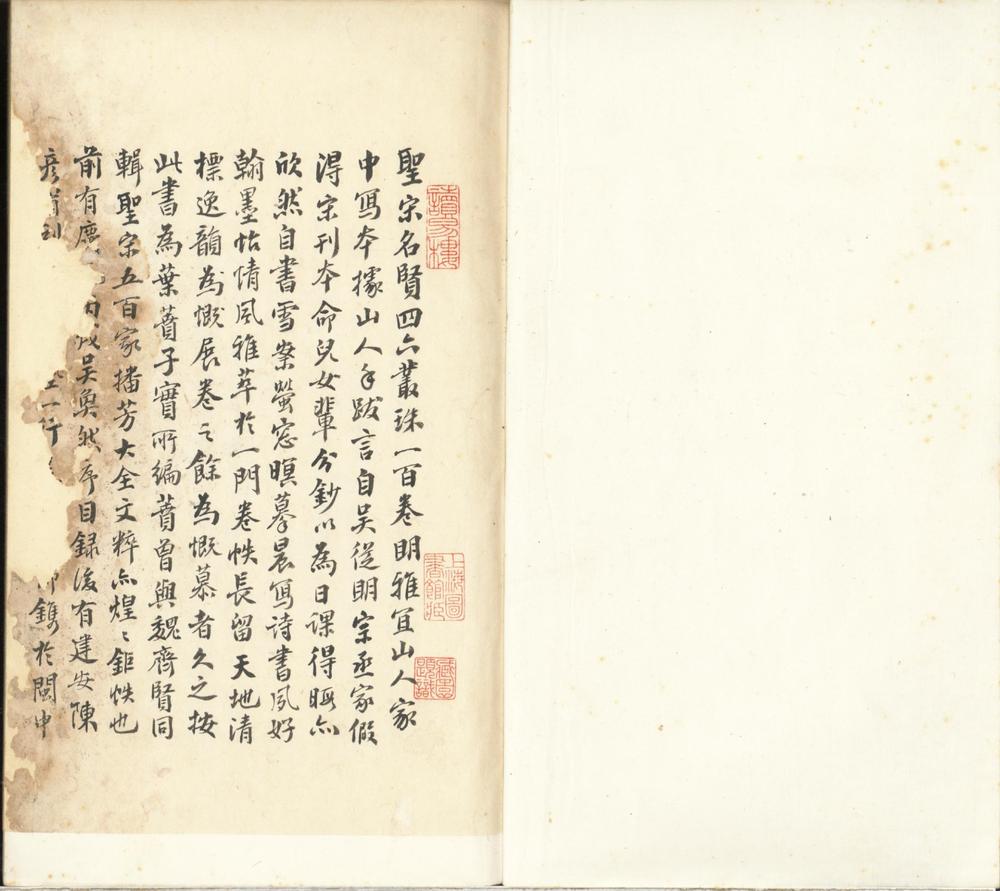 聖宋名賢四六叢珠一百卷明雅宜山人家
中寫本據山人手跋言自吳從明宗丞家假
得宋刊本命兒女輩分鈔以為日課得暇亦
欣然自書雪案螢窓暝摹晨寫詩書夙好
翰墨怡情風雅萃於一門卷帙長留天地清
標逸韻為慨展卷之餘為慨慕者久之按
此書為葉蕡子實所編蕡曾與魏齊賢同
輯聖宋五百家播芳大全文粹亦煌〻鉅帙也
前有慶 吳奐然序目録後有建安陳
彥甫刊 一行 鐫於閩中
讀易樓
上海圖書館藏
臧書題識